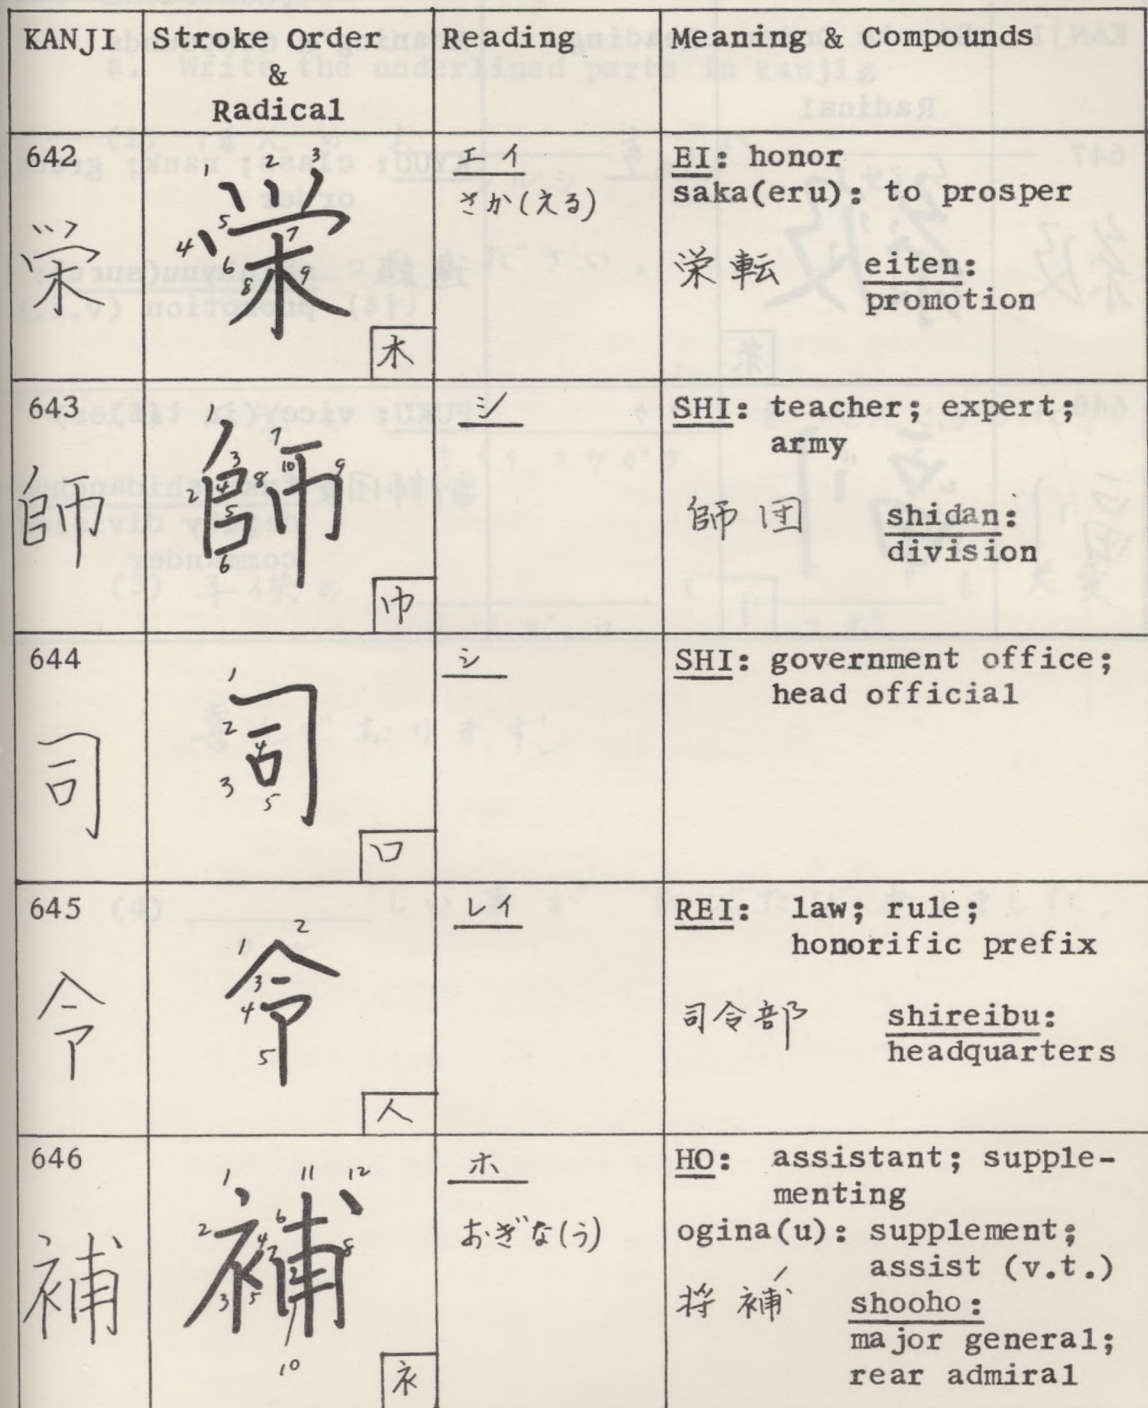 KANJI Stroke Order & Radical Reading Meaning & Compounds
642
栄
1 2 3 4 5 6 7 8 9
栄
木
エイ
さか(える)
EI: honor
saka(eru): to prosper
栄転 eiten:
promotion
643
師
1 2 3 4 5 6 7 8 9 10
師
巾
シ
SHI: teacher; expert;
army
師団 shidan:
division
644
司
1 2 3 4 5
司
口
シ
SHI: government office;
head official
645
令
1 2 3 4 5
令
人
レイ
REI: law; rule;
honorific prefix
司令部 shireibu:
headquarters
646
補
補
衤
ホ
おぎな(う)
HO: assistant; supple-
menting
ogina(u): supplement;
assist (v.t.)
将補 shooho:
major general;
rear admiral